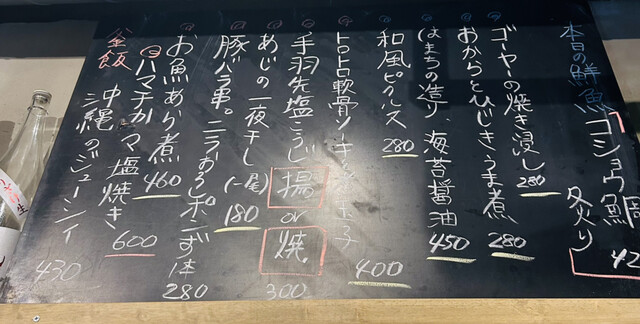 本日の鮮魚
コショウ鯛 炙り 42
ゴーヤーの焼き浸し 280
おからとひじきうま煮 280
はまちの造り 海苔醤油 450
和風ピクルス 280
トロトロ軟骨ソーキ 玉子 400
手羽先塩こうじ 揚 or 焼 300
あじの一夜干し (一尾) 180
豚バラ串。ニラおろしポンず 1本 280
お魚あら煮 460
ハマチカマ塩焼き 600
釜飯
沖縄のジューシィ 430